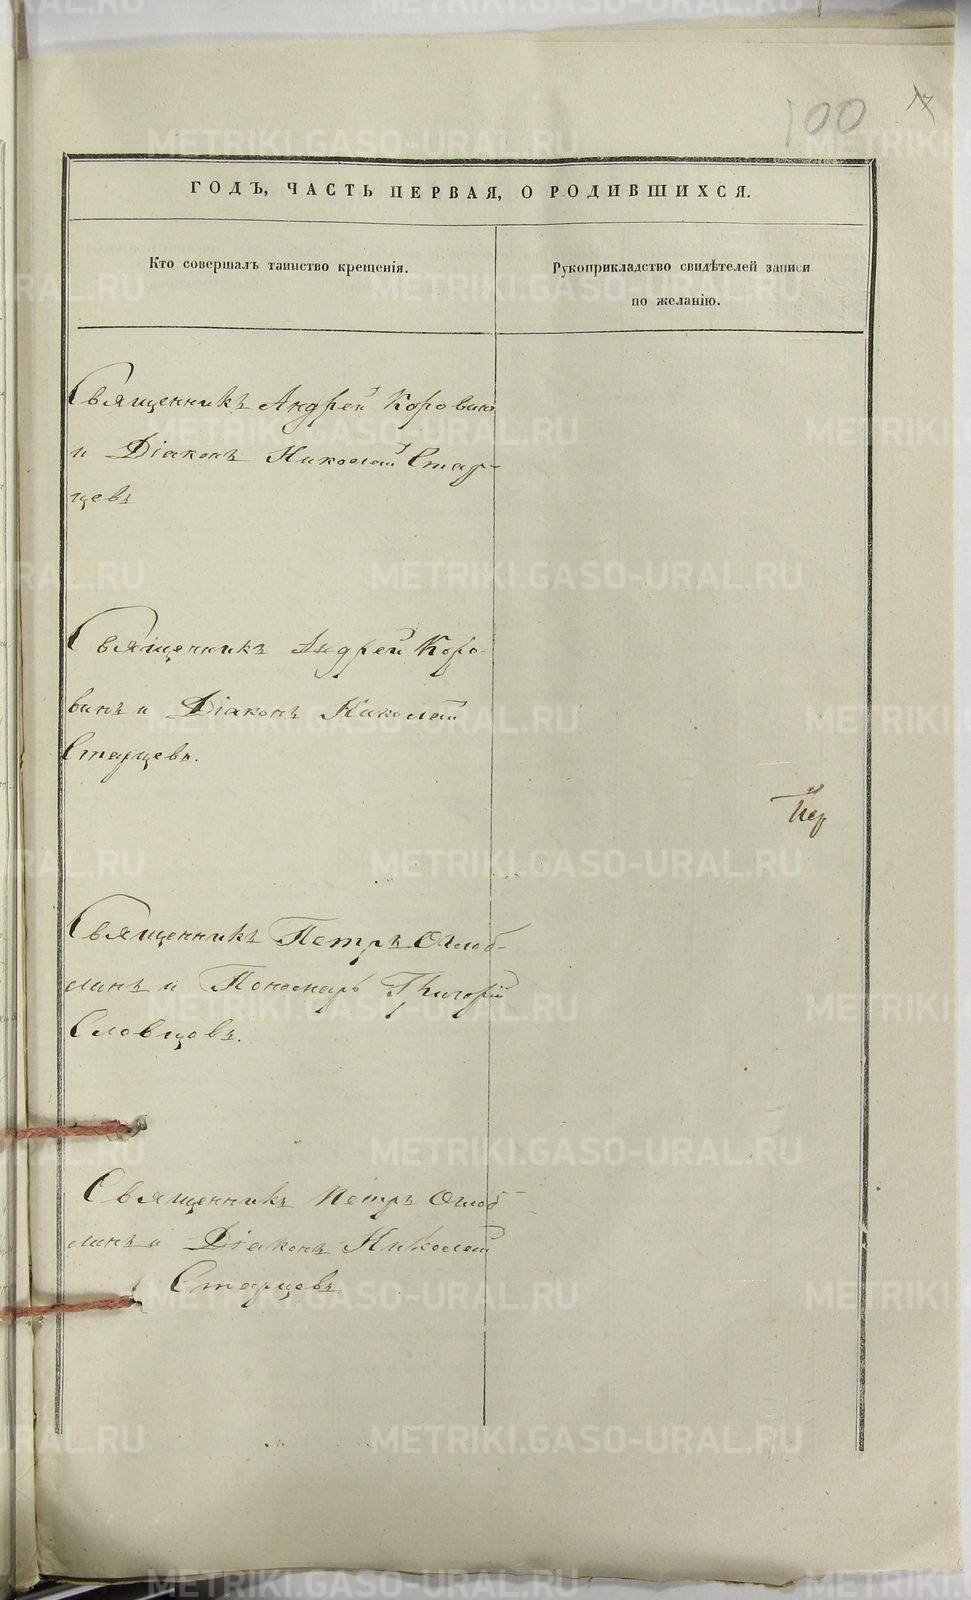 100
17
ГОДЪ, ЧАСТЬ ПЕРВАЯ, О РОДИВШИХСЯ.
Кто совершалъ таинство крещенія.
Рукоприкладство свидѣтелей записи
по желанію.
Священникъ Андрей Коровинъ
и Діаконъ Николай Стар-
цевъ
Священникъ Андрей Коро-
винъ и Діаконъ Николай
Старцевъ.
Священникъ Петръ Оглоб-
линъ и Пономарь Григорій
Словцовъ.
Священникъ Петръ Оглоб-
линъ и Діаконъ Николай
Старцевъ
METRIKI.GASO-URAL.RU